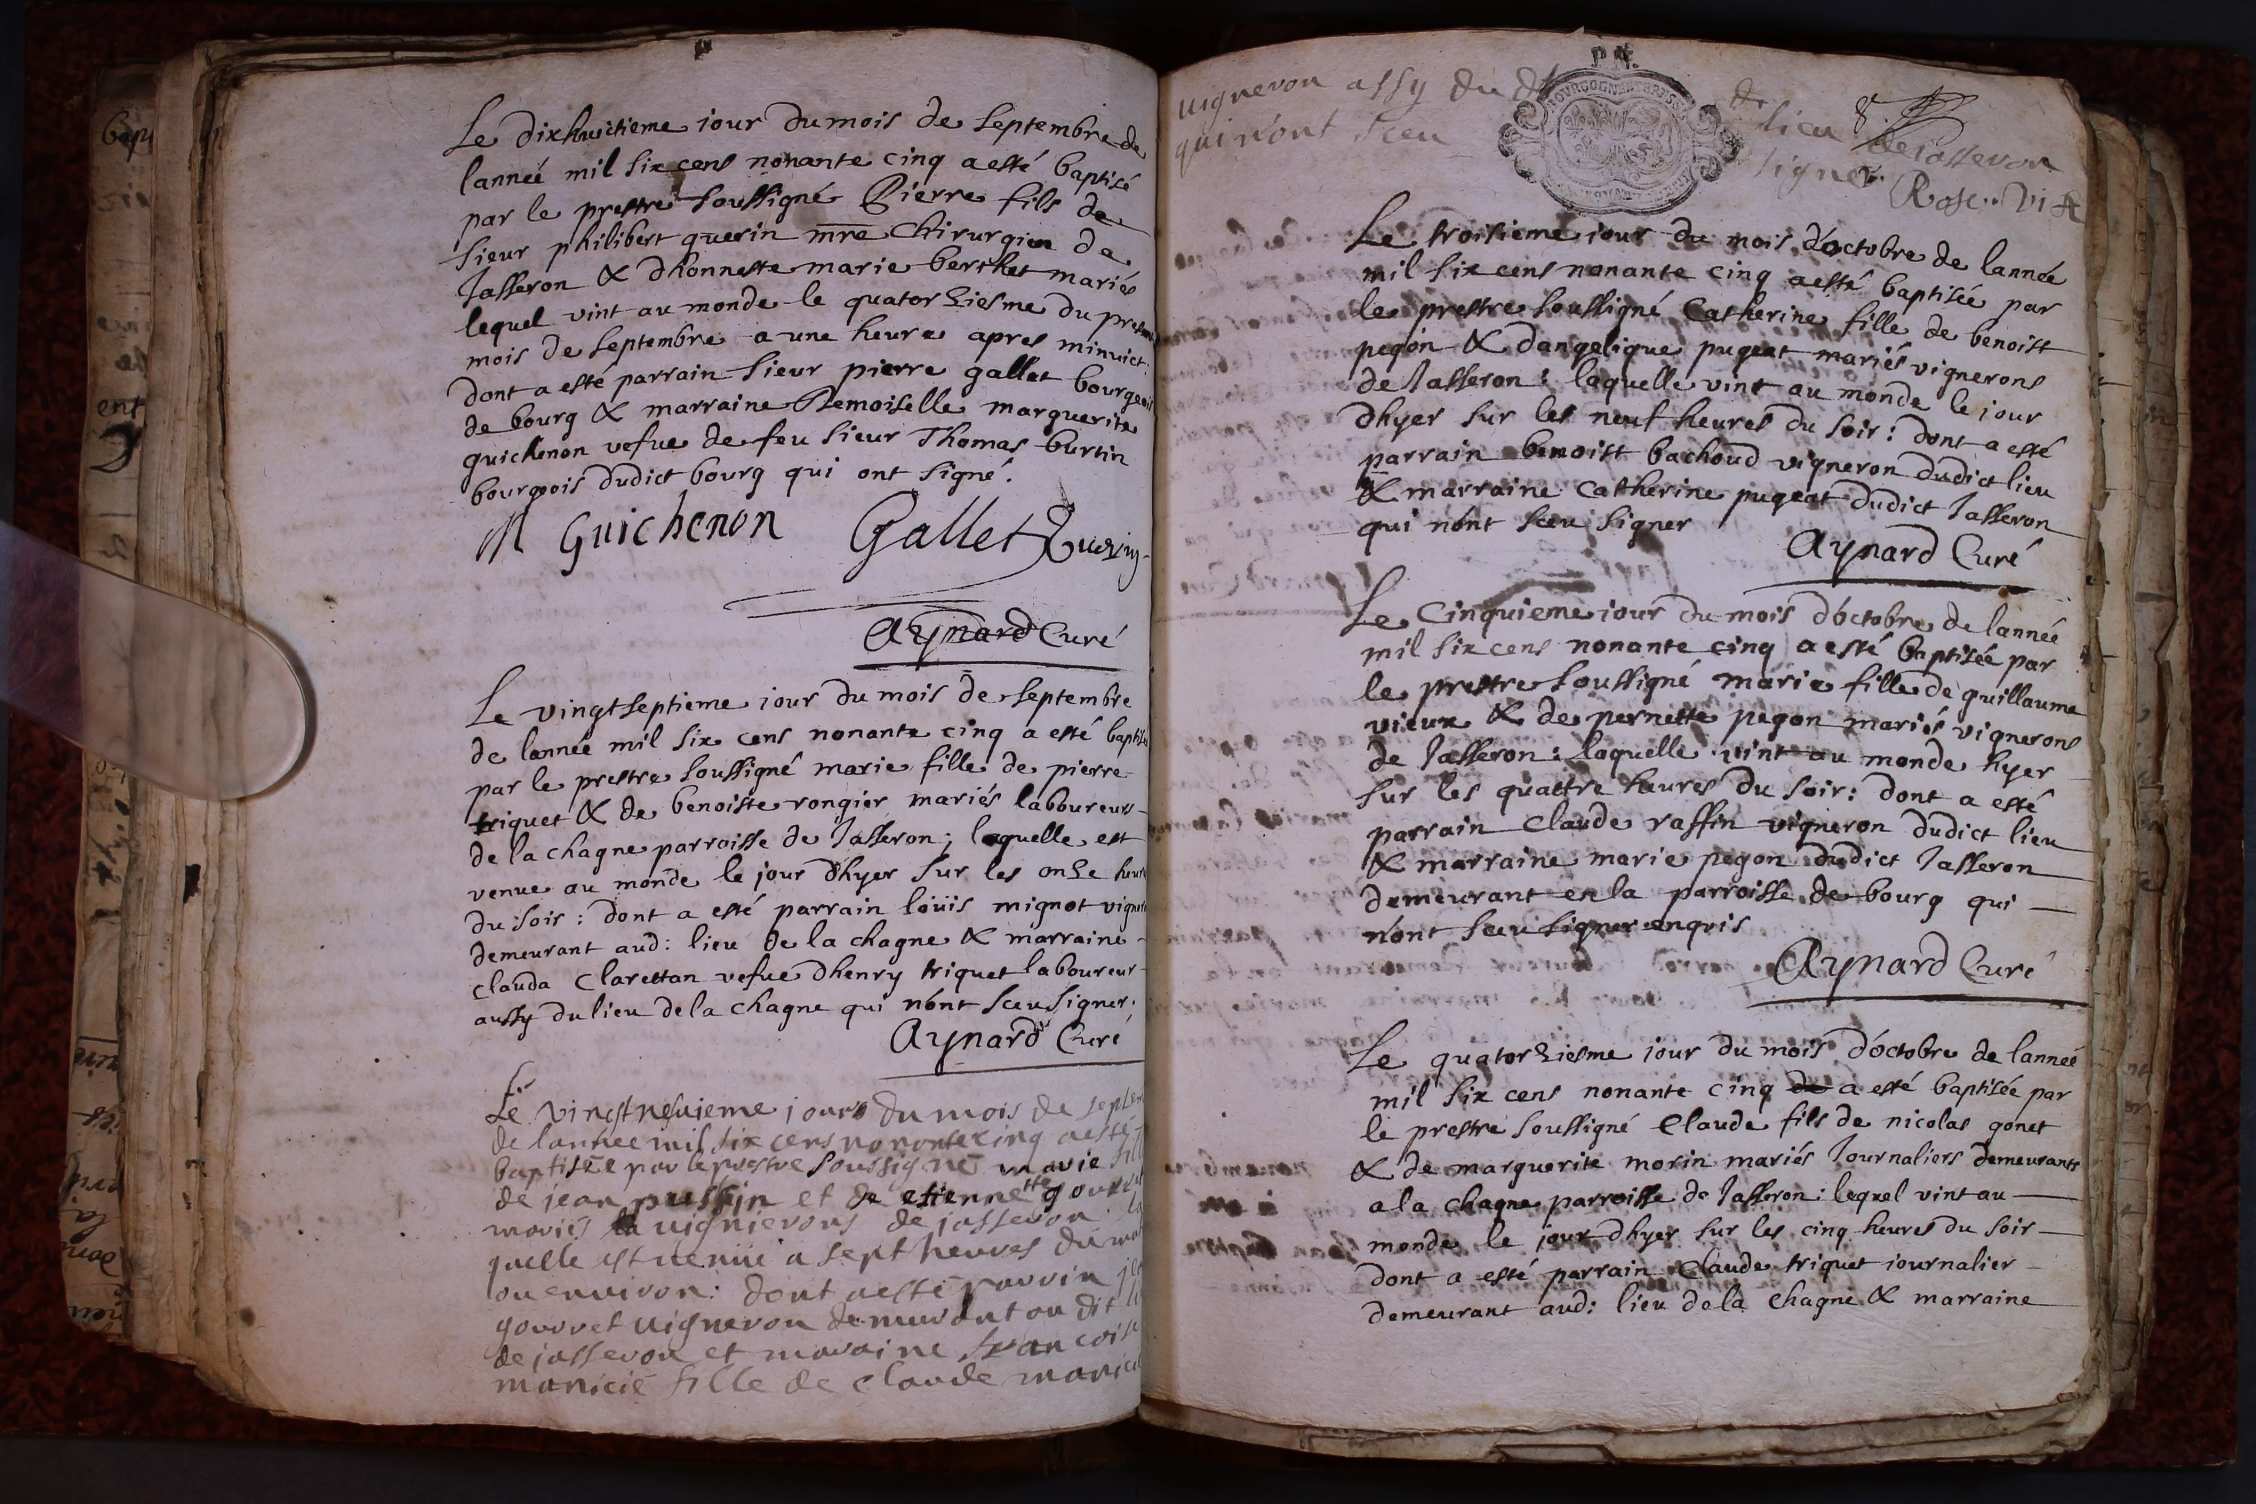 Le dixhuictieme iour du mois de septembre de
lanneé mil six cens nonante cinq a esté baptisé
par le prestre soussigné Pierre fils de
sieur philibert guerin mre Chirurgien de
Jasseron & dhonneste marie berthet mariés
lequel vint au monde le quatorziesme du present
mois de septembre a une heure apres minuict.
dont a esté parrain sieur pierre gallet bourgeois
de bourg & marraine Demoiselle marguerite
guichenon vefue de feu sieur Thomas burtin
bourgeois dudict bourg qui ont signé.
M Guichenon Gallet Guerin
Aynard Curé
Le vingtseptieme iour du mois de septembre
de lanneé mil six cens nonante cinq a esté baptisée
par le prestre soussigné marie fille de pierre
triquet & de benoiste rongier mariés laboureurs
de la chagne parroisse de Jasseron; laquelle est
venue au monde le jour d'hyer sur les onze heures
du soir: dont a esté parrain loüis mignot vigneron
demeurant aud: lieu de la chagne & marraine
clauda Clarettan vefue dhenry triquet laboureur
aussy du lieu de la chagne qui nónt sceu signer.
Aynard Curé
Le vingtneuvieme jour du mois de septem
de lannee mil six cens nonante cinq a esté
baptisee par le prestre soussigné marie fill
de jean et de etiennette gourret
mariés vignierons de jasseron. la
quelle est venüe a sept heures du ma
ou environ: dont a esté parrin
gourret vigneron demeurant au dit l
de jasseron et maraine francoise
maricié fille de claude marici
vigneron assy du dt de lieu de jasseron
qui n'ont sceu signer.
8.
Le troisieme iour du mois dóctobre de lanneé
mil six cens nonante cinq a esté baptisée par
le prestre soussigné Catherine fille de benoist
pegon & dangelique pugeat mariés vignerons
de Jasseron: laquelle vint au monde le jour
dhyer sur les neuf heures du soir: dont a esté
parrain benoist bachoud vigneron dudict lieu
& marraine catherine pugeat dudict Jasseron
qui nónt sceu signer
Aynard Curé
Le Cinquieme iour du mois dóctobre de lanneé
mil six cens nonante cinq a esté baptisée par
le prestre soussigné marie fille de guillaume
vieux & de pernette pegon mariés vignerons
de Jasseron: laquelle vint au monde hyer
sur les quattre heures du soir: dont a esté
parrain Claude raffin vigneron dudict lieu
& marraine marie pegon dudict Jasseron
demeurant en la parroisse de bourg qui
nónt sceu signer enquis
Aynard Curé
Le quatorziesme iour du mois dóctobre de lanneé
mil six cens nonante cinq de a esté baptisée par
le prestre soussigné Claude fils de nicolas gonet
& de marguerite morin mariés Journaliers demeurants
a la chagne parroisse de Jasseron: lequel vint au
monde le jour dhyer sur les cinq heures du soir
dont a esté parrain Claude triquet iournalier
demeurant aud: lieu de la Chagne & marraine